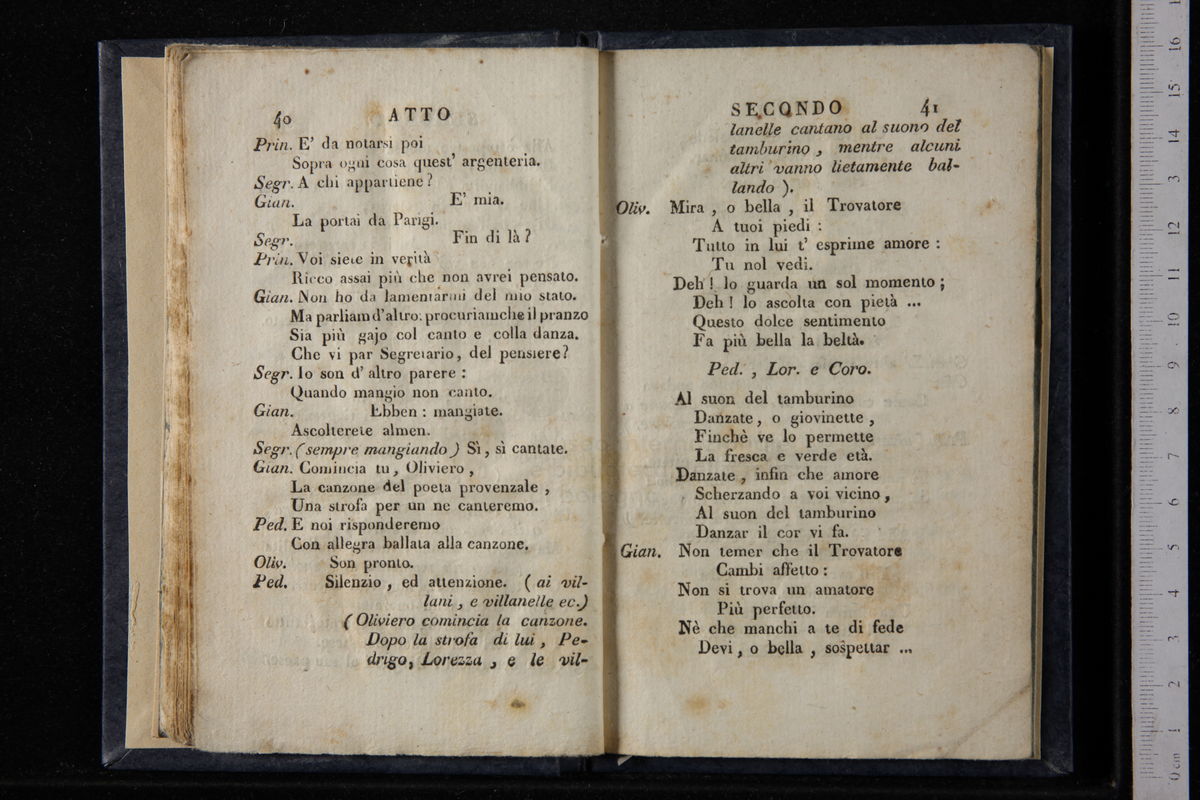 40 ATTO
Prin. E' da notarsi poi
Sopra ogni cosa quest' argenteria.
Segr. A chi appartiene?
Gian. E' mia.
La portai da Parigi.
Segr. Fin di là?
Prin. Voi siete in verità
Ricco assai più che non avrei pensato.
Gian. Non ho da lamentarmi del mio stato.
Ma parliam d'altro: procuriamche il pranzo
Sia più gajo col canto e colla danza.
Che vi par Segretario, del pensiere?
Segr. Io son d' altro parere :
Quando mangio non canto.
Gian. Ebben : mangiate.
Ascolterete almen.
Segr. (sempre mangiando) Sì, sì cantate.
Gian. Comincia tu, Oliviero,
La canzone del poeta provenzale ,
Una strofa per un ne canteremo.
Ped. E noi risponderemo
Con allegra ballata alla canzone.
Oliv. Son pronto.
Ped. Silenzio, ed attenzione. (ai vil-
lani, e villanelle ec.)
(Oliviero comincia la canzone.
Dopo la strofa di lui, Pe-
drigo, Lorezza, e le vil-
SECONDO 41
lanelle cantano al suono del
tamburino, mentre alcuni
altri vanno lietamente bal-
lando ).
Oliv. Mira , o bella , il Trovatore
A tuoi piedi :
Tutto in lui t' esprime amore :
Tu nol vedi.
Deh ! lo guarda un sol momento ;
Deh ! lo ascolta con pietà ...
Questo dolce sentimento
Fa più bella la beltà.
Ped. , Lor. e Coro.
Al suon del tamburino
Danzate, o giovinette,
Finchè ve lo permette
La fresca e verde età.
Danzate, infin che amore
Scherzando a voi vicino,
Al suon del tamburino
Danzar il cor vi fa.
Gian. Non temer che il Trovatore
Cambi affetto :
Non si trova un amatore
Più perfetto.
Nè che manchi a te di fede
Devi, o bella , sospettar ...
0 cm 1 2 3 4 5 6 7 8 9 10 11 12 13 14 15 16